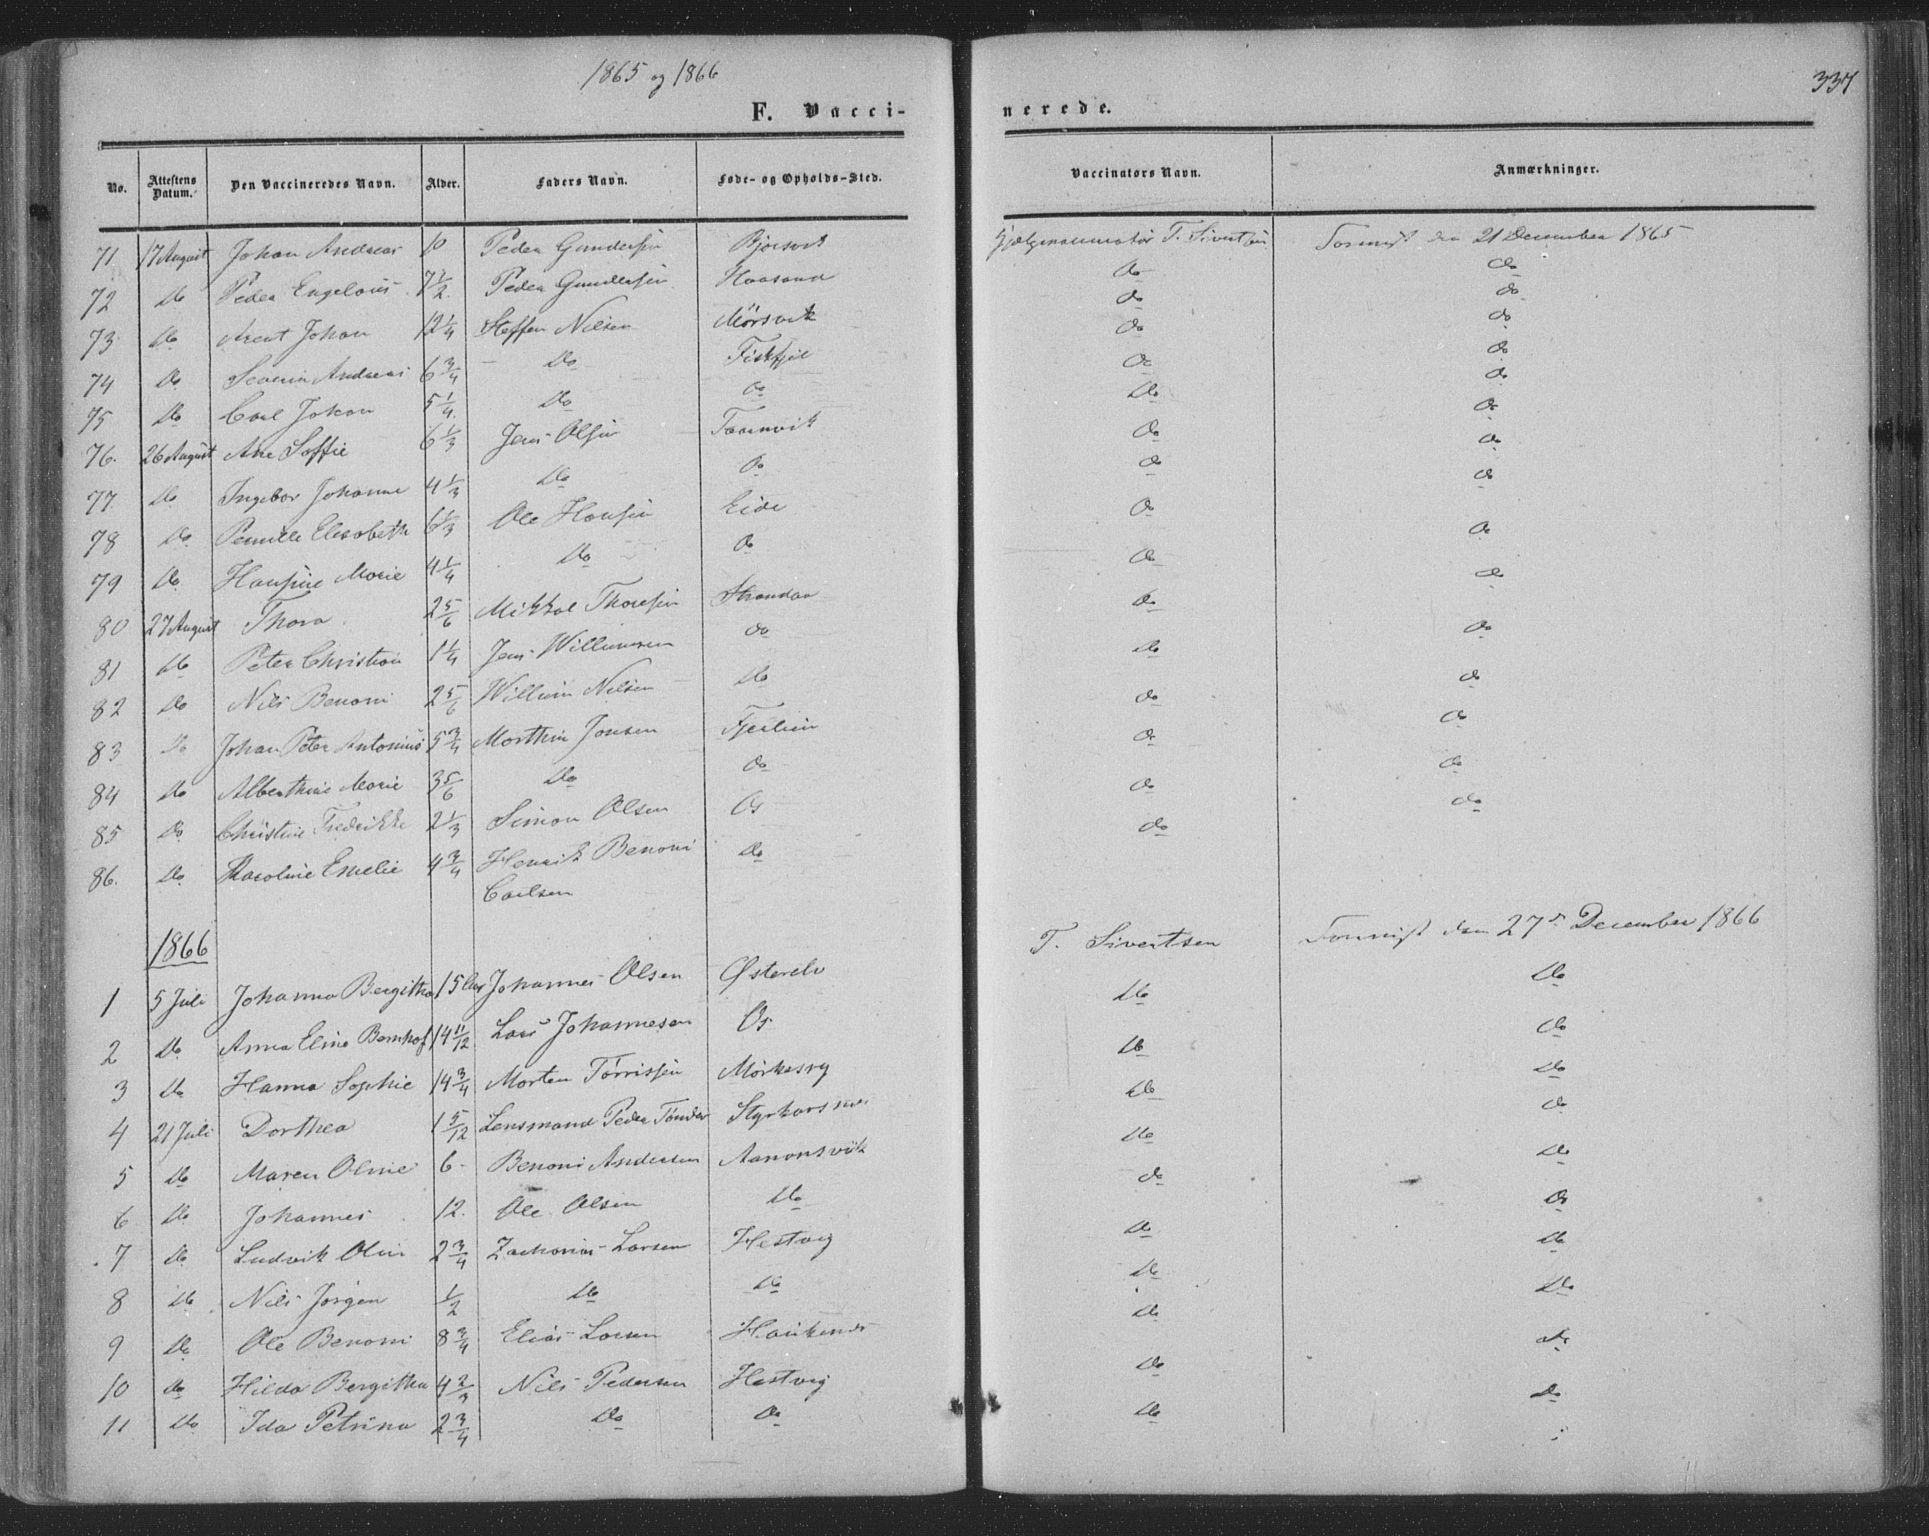 1865 og 1866
337
F. Vacci-
nerede.
No. Attestens Datum. Den Vaccineredes Navn. Alder. Faders Navn. Føde- og Opholds-Sted. Vaccinators Navn. Anmærkninger.
71 17 August Johan Andreas 10 Peder Gundersen T. Sivertsen den 21 December 1865
72 Do Peder Engelous 7 1/2 Peder Gundersen Haasand do do
73 Do Arent Johan 12 1/4 Steffen Nilsen Mörsvik do do
74 Do Severin Andreas 6 3/4 Do Fiskfjel do do
75 Do Carl Johan 5 1/4 Do do do do
76. 26 August Ane Soffie 6 1/3 Jens Olsen Taarnvik Do do
77. Do Ingebor Johanne 4 1/3 Do Do do do
78 Do Pernille Elisabeth 6 1/3 Ole Hansen Eide do do
79 Do Hansine Marie 4 1/4 Do do do do
80 27 August Thora 2 5/6 Mikkal Thoresen Strandaa do do
81 Do Peter Christian 1 1/4 Jens Willumsen do do do
82 Do Nils Benoni 2 5/6 Willum Nilsen Do do do
83 Do Johan Peter Antonius 5 3/4 Morthen Jonsen do do
84 Do Alberthine Marie 3 5/6 Do do do do
85 Do Christine Fredrikke 2 1/3 Simon Olsen Os do do
86. Do Karoline Emelie 4 3/4 Henrik Benoni Do do do
Carlsen
1866
T. Sivertsen den 27de December 1866
1 5 Juli Johanna Bergitha 15 Johannes Olsen Østerelv Do Do
2 Do Anna Eline Bernhof 14 11/12 Lars Johannesen Os Do Do
3 Do Hanna Sophie 14 3/4 Morten Tørrissen Mörkesvg Do Do
4 21 Juli Dorthea 1 5/12 Lensmand Peder Tønder Do Do
5 Do Maren Oline 6 Benoni Andersen Aanonsvik do Do
6 Do Johannes 12. Ole Olsen Do Do Do
7 Do Ludvik Olin 2 3/4 Zacharias Larsen Hestvig Do Do
8 Do Nils Jørgen 1/2 Do Do Do Do
9 Do Ole Benoni 8 3/4 Elias Larsen Haukenes Do Do
10 do Hilda Bergitha 4 2/3 Nils Pedersen Hestvig Do Do
11 Do Ida Petrina 2 3/4 Do Do Do